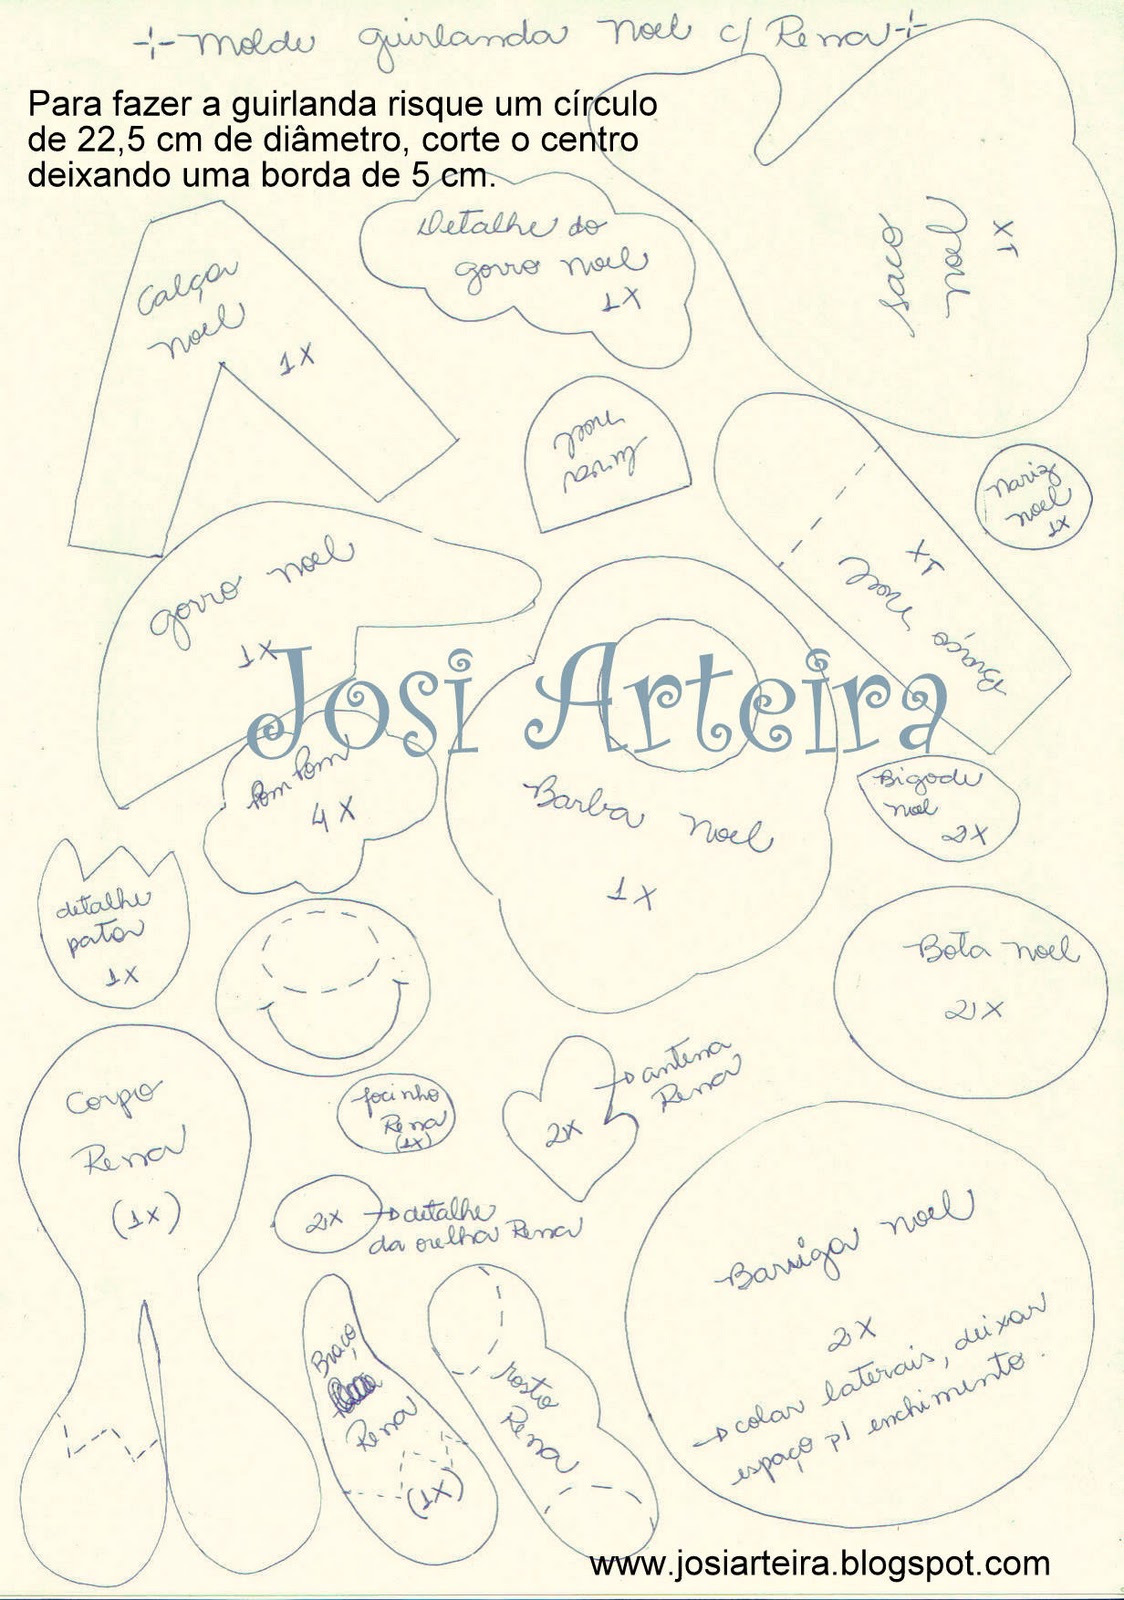 Molde guirlanda Noel c/ Rena
Para fazer a guirlanda risque um círculo
de 22,5 cm de diâmetro, corte o centro
deixando uma borda de 5 cm.
Detalhe do
gorro noel
1X
saco
noel
1X
Calça
noel
1X
luva
noel
Nariz
noel
1X
Braço Noel
1X
gorro noel
1X
Josi Arteira
Pom Pom
4X
Barba noel
1X
Bigode
noel
2X
detalhe
pata
1X
Bota noel
2X
Corpo
Rena
(1X)
focinho
Rena
(1X)
antena
Rena
2X
2X → detalhe
da orelha Rena
Braço
Rena
(1X)
rosto
Rena
Barriga noel
2X
→ colar laterais, deixar
espaço p/ enchimento.
www.josiarteira.blogspot.com